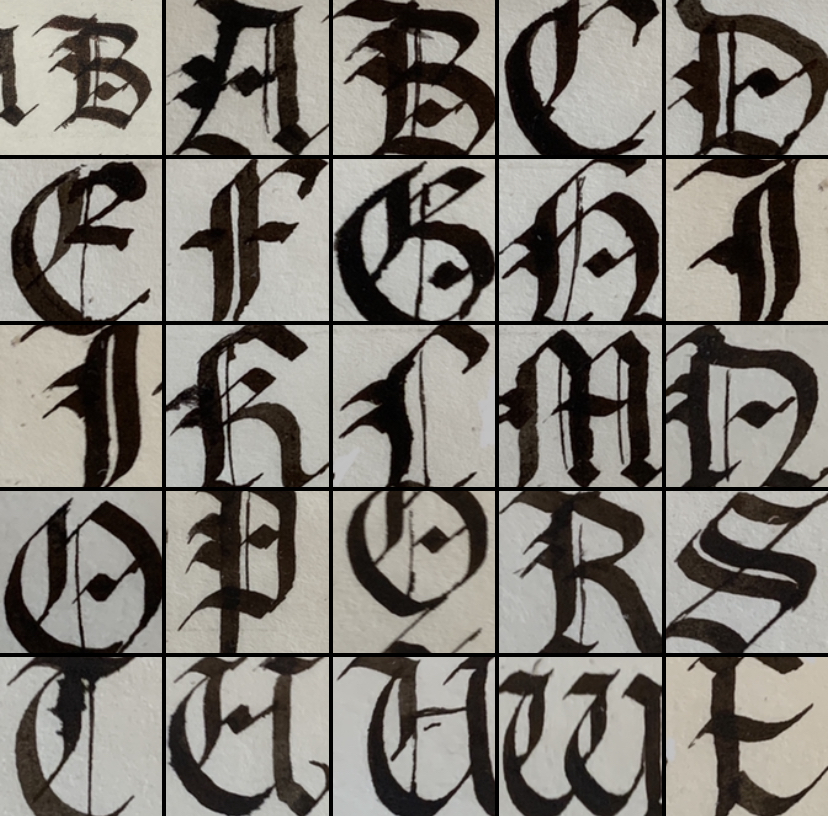 B A B C D
E F G H I
J K L M N
O P Q R S
T U V W X